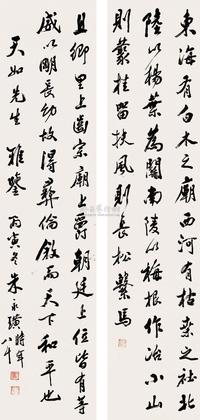 東海有白木之廟西河有枯桑之社北
陸以楊葉為關南陵以梅根作冶小山
則叢桂留扶風則長松繫馬
且鄉里上齒宗廟上爵朝廷上位皆有等
威以明長幼故得彝倫敘而天下和平也
天如先生 雅鑒 丙寅冬 朱永璜時年八十